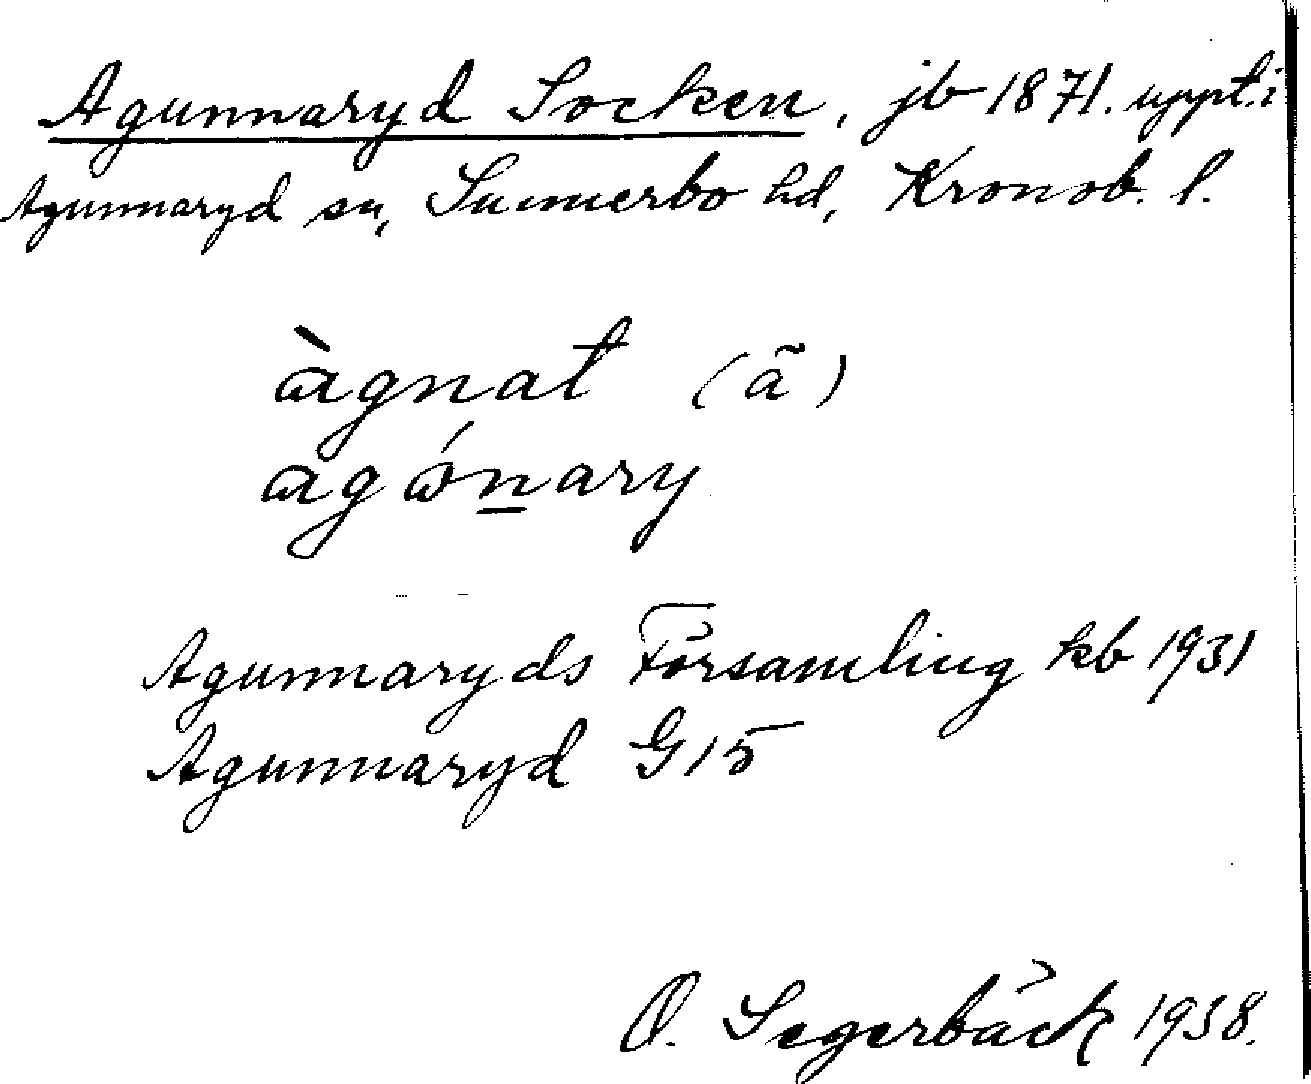 Agunnaryd Socken, jb 1871. uppt. i
Agunnaryd sn, Sunnerbo hd, Kronob. l.
àgnat (ã)
agónary
Agunnaryds Församling kb 1931
Agunnaryd G15
O. Segerbäck 1938.